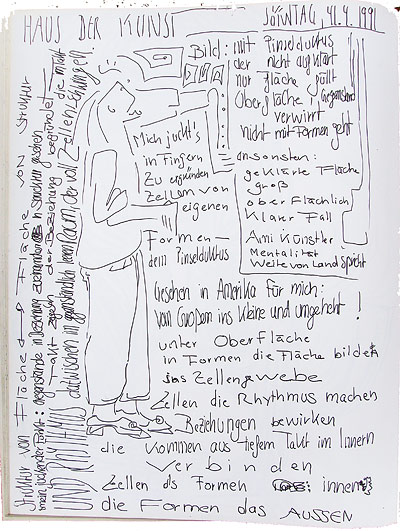 HAUS DER KUNST
SONNTAG, 21.4.1991
Bild: mit
Pinselduktus
der nicht aufklärt
nur Fläche füllt
Oberfläche Gegenstand
verwirrt
nicht mit Formen geht
ansonsten:
geklärte Fläche
groß
oberflächlich
Klarer Fall
Ami Künstler
Mentalität
Weite von Land spricht
Mich juckt's
in Fingern
Zu ergründen
Zellum von
eigenen
Formen –
dem Pinselduktus
Gesehen in Amerika für mich:
vom Großen ins Kleine und umgekehrt!
unter Oberfläche
in Formen die Fläche bilden
das Zellengewebe
Zellen die Rhythmus machen
Beziehungen bewirken
die kommen aus tiefem Takt im Innern
verbinden
Zellen als Formen innen
die Formen das AUSSEN
Struktur von Fläche Fläche von Struktur
mein
Takt zeigen der Beziehung begründet
UND RHYTHMUS
dazwischen Raum, der voll Zellen die im Takt
schwingen.